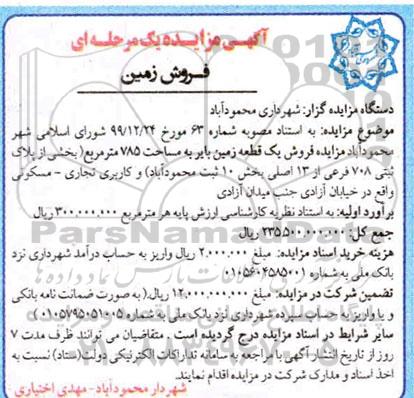 آگهی مزایده یک مرحله ای
فروش زمین
دستگاه مزایده گزار: شهرداری محمودآباد
موضوع مزایده: به استناد مصوبه شماره ۶۳ مورخ ۹۹/۱۲/۲۴ شورای اسلامی شهر
محمودآباد مزایده فروش یک قطعه زمین بایر به مساحت ۷۸۵ مترمربع( بخشی از پلاک
ثبتی ۷۰۸ فرعی از ۱۳ اصلی بخش ۱۰ ثبت محمودآباد) و کاربری تجاری - مسکونی
واقع در خیابان آزادی جنب میدان آزادی
برآورد اولیه: به استناد نظریه کارشناسی ارزش پایه هر مترمربع ۳۰۰.۰۰۰.۰۰۰ ریال
جمع کل: ۲۳۵.۵۰۰.۰۰۰.۰۰۰ ریال
هزینه خرید اسناد مزایده: مبلغ ۲.۰۰۰.۰۰۰ ریال واریز به حساب درآمد شهرداری نزد
بانک ملی به شماره (۰۱۰۵۶۰۴۵۸۵۰۰۱)
تضمین شرکت در مزایده: مبلغ ۱۲.۰۰۰.۰۰۰.۰۰۰ ریال.( به صورت ضمانت نامه بانکی
و یا واریز به حساب سپرده شهرداری نزد بانک ملی به شماره ۰۱۰۵۷۹۵۰۵۱۰۰۵)
سایر شرایط در اسناد مزایده درج گردیده است . متقاضیان می توانند ظرف مدت ۷
روز از تاریخ انتشار آگهی با مراجعه به سامانه تدارکات الکترونیکی دولت(ستاد) نسبت به
اخذ اسناد و مدارک شرکت در مزایده اقدام نمایند.
شهردار محمودآباد - مهدی اختیاری
ParsNamadData